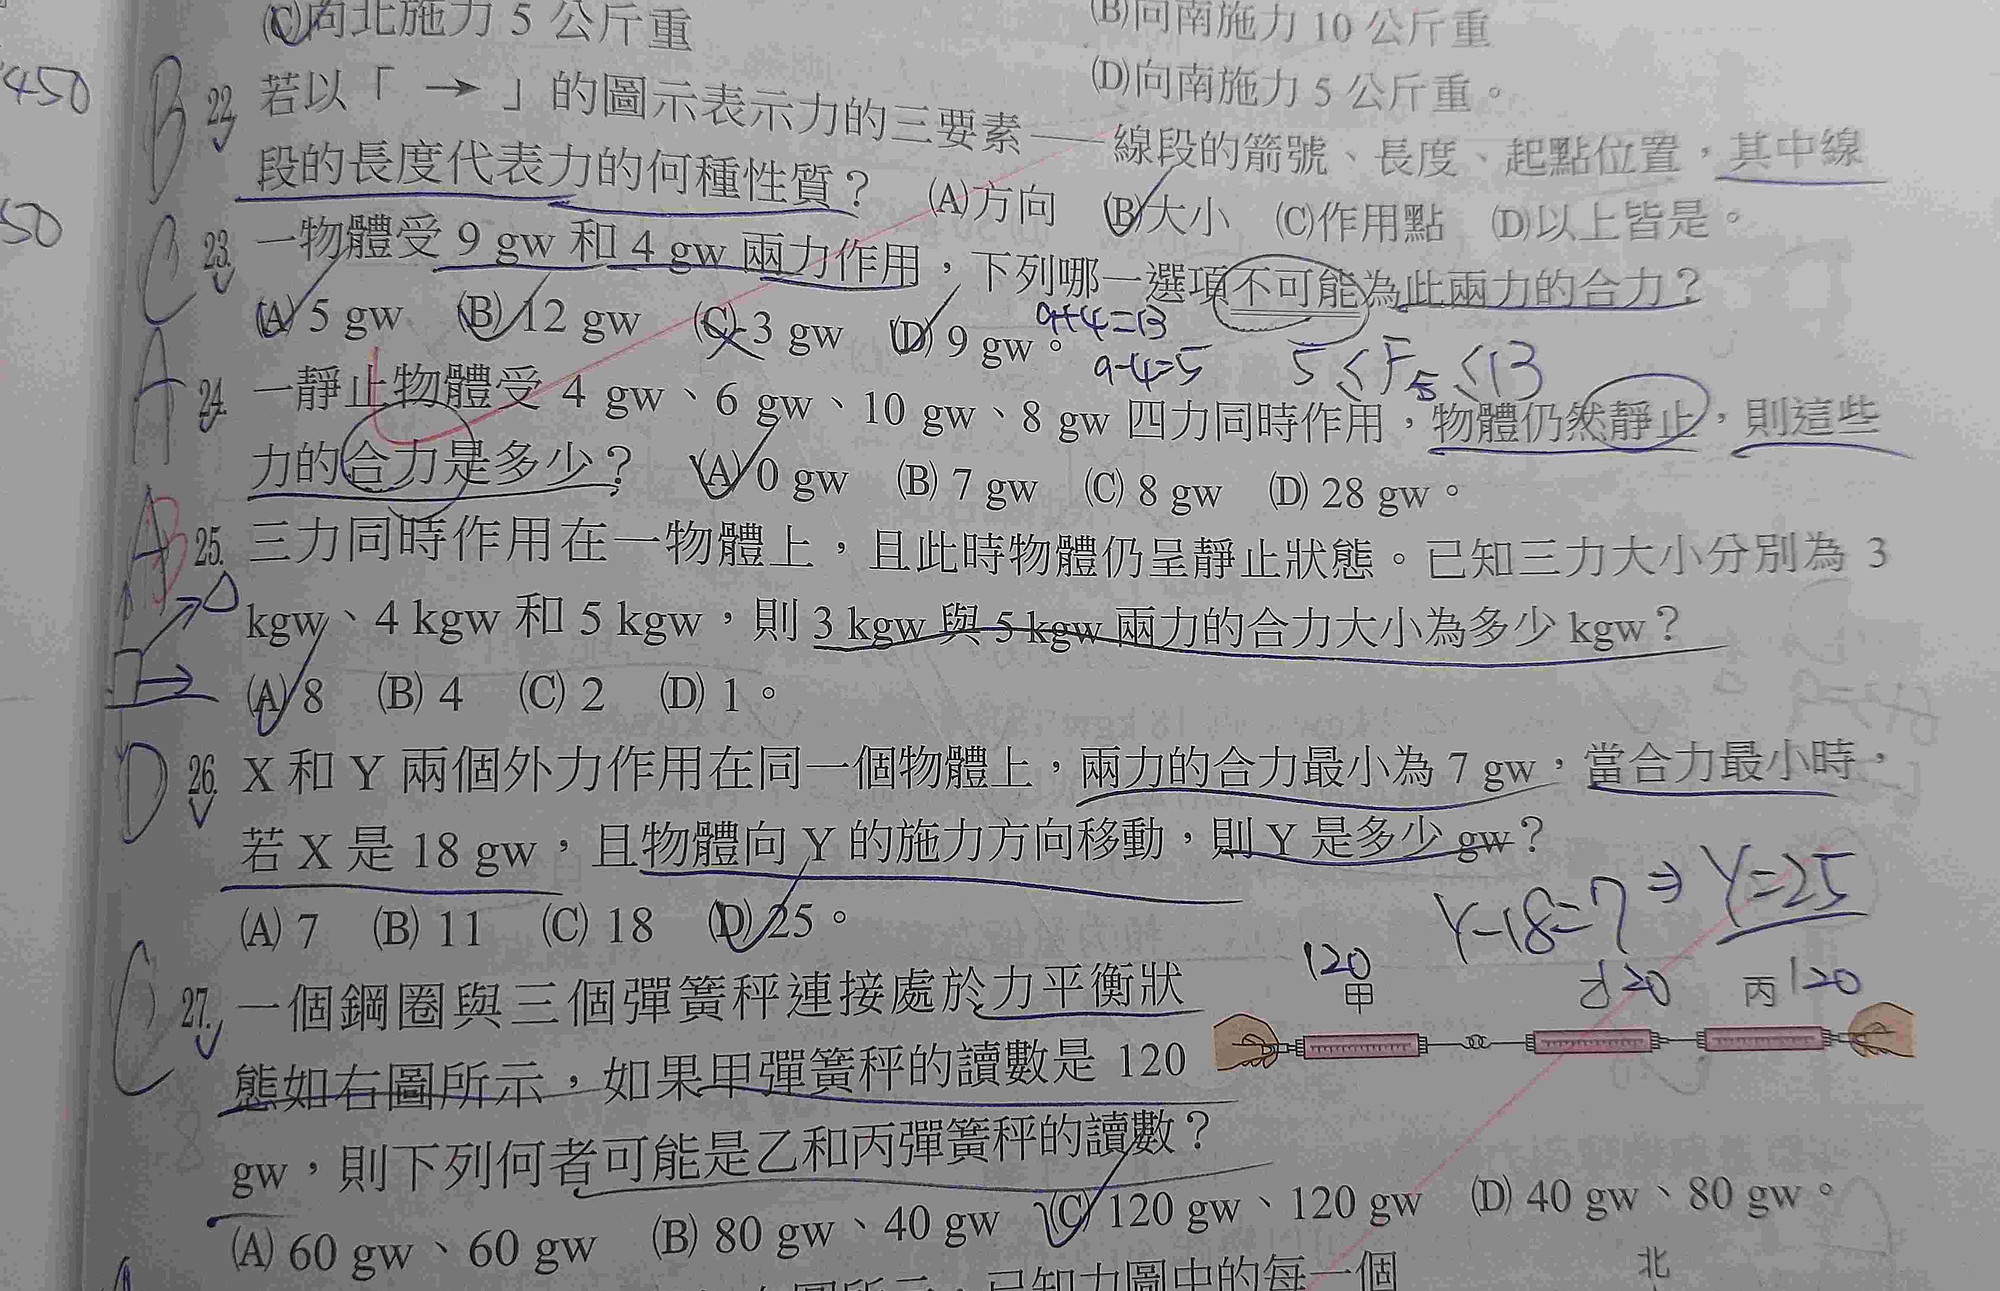 450
50
(C)向北施力 5 公斤重
(B)向南施力 10 公斤重
(D)向南施力 5 公斤重。
B 22. 若以「 → 」的圖示表示力的三要素──線段的箭號、長度、起點位置，其中線
段的長度代表力的何種性質？ (A)方向 (B)大小 (C)作用點 (D)以上皆是。
C 23. 一物體受 9 gw 和 4 gw 兩力作用，下列哪一選項不可能為此兩力的合力？
(A) 5 gw (B) 12 gw (C) 3 gw (D) 9 gw。
9+4=13
9-4=5
5≤F合≤13
A 24. 一靜止物體受 4 gw、6 gw、10 gw、8 gw 四力同時作用，物體仍然靜止，則這些
力的合力是多少？ (A) 0 gw (B) 7 gw (C) 8 gw (D) 28 gw。
A B 25. 三力同時作用在一物體上，且此時物體仍呈靜止狀態。已知三力大小分別為 3
kgw、4 kgw 和 5 kgw，則 3 kgw 與 5 kgw 兩力的合力大小為多少 kgw？
(A) 8 (B) 4 (C) 2 (D) 1。
D 26. X 和 Y 兩個外力作用在同一個物體上，兩力的合力最小為 7 gw，當合力最小時，
若 X 是 18 gw，且物體向 Y 的施力方向移動，則 Y 是多少 gw？
(A) 7 (B) 11 (C) 18 (D) 25。
Y-18=7 ⇒ Y=25
C 27. 一個鋼圈與三個彈簧秤連接處於力平衡狀
態如右圖所示，如果甲彈簧秤的讀數是 120
gw，則下列何者可能是乙和丙彈簧秤的讀數？
(A) 60 gw、60 gw (B) 80 gw、40 gw (C) 120 gw、120 gw (D) 40 gw、80 gw。
120
甲
丙 120
已知力圖中的每一個
北